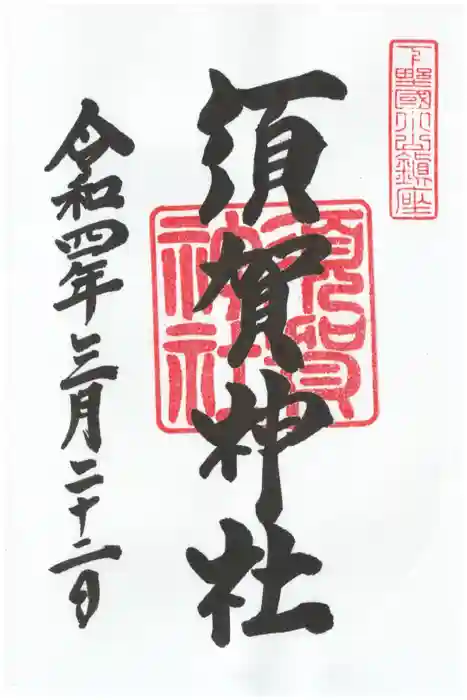 下野國小山鎮座
須賀神社
須賀
神社
令和四年三月二十二日